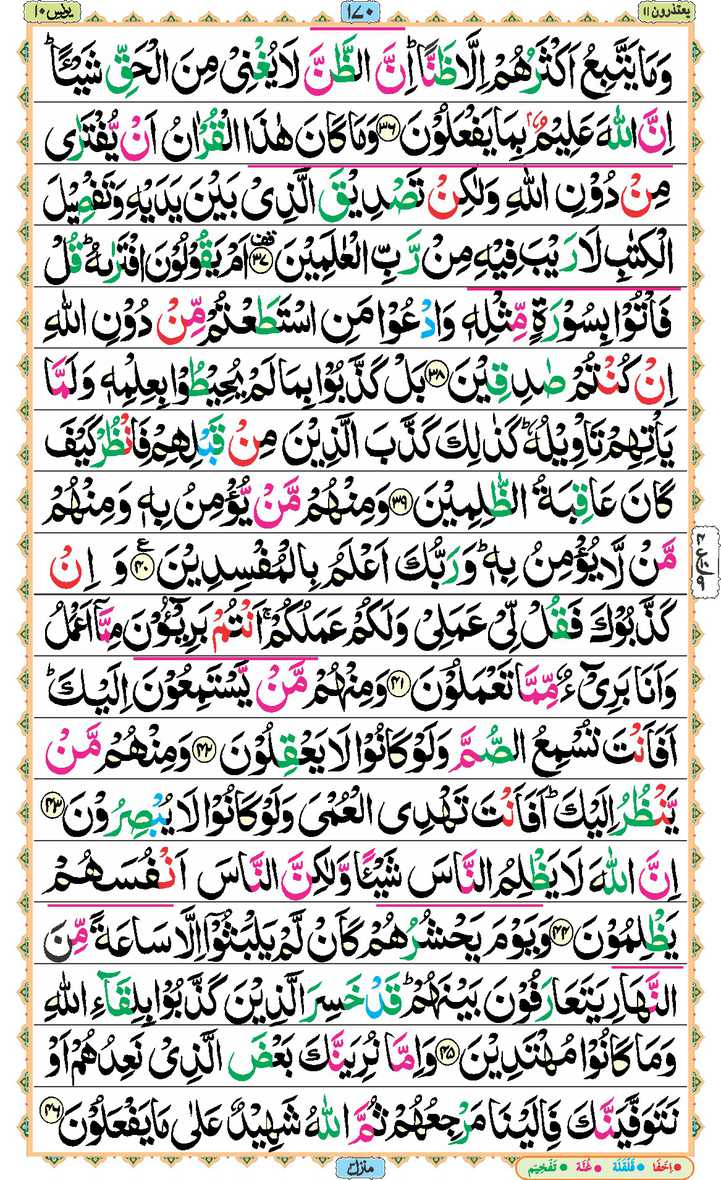 یعتذرون ۱۱
۱۷۰
یونس ۱۰
وَمَا یَتَّبِعُ اَكْثَرُهُمْ اِلَّا ظَنًّا ؕ اِنَّ الظَّنَّ لَا یُغْنِیْ مِنَ الْحَقِّ شَیْـًٔا ؕ
اِنَّ اللّٰهَ عَلِیْمٌۢ بِمَا یَفْعَلُوْنَ ۳۶ وَمَا كَانَ هٰذَا الْقُرْاٰنُ اَنْ یُّفْتَرٰی
مِنْ دُوْنِ اللّٰهِ وَلٰكِنْ تَصْدِیْقَ الَّذِیْ بَیْنَ یَدَیْهِ وَتَفْصِیْلَ
الْكِتٰبِ لَا رَیْبَ فِیْهِ مِنْ رَّبِّ الْعٰلَمِیْنَ ۳۷ اَمْ یَقُوْلُوْنَ افْتَرٰىهُ ؕ قُلْ
فَاْتُوْا بِسُوْرَةٍ مِّثْلِهٖ وَادْعُوْا مَنِ اسْتَطَعْتُمْ مِّنْ دُوْنِ اللّٰهِ
اِنْ كُنْتُمْ صٰدِقِیْنَ ۳۸ بَلْ كَذَّبُوْا بِمَا لَمْ یُحِیْطُوْا بِعِلْمِهٖ وَلَمَّا
یَاْتِهِمْ تَاْوِیْلُهٗ ؕ كَذٰلِكَ كَذَّبَ الَّذِیْنَ مِنْ قَبْلِهِمْ فَانْظُرْ كَیْفَ
كَانَ عَاقِبَةُ الظّٰلِمِیْنَ ۳۹ وَمِنْهُمْ مَّنْ یُّؤْمِنُ بِهٖ وَمِنْهُمْ
مَّنْ لَّا یُؤْمِنُ بِهٖ ؕ وَرَبُّكَ اَعْلَمُ بِالْمُفْسِدِیْنَ ۴۰ ع وَ اِنْ
كَذَّبُوْكَ فَقُلْ لِّیْ عَمَلِیْ وَلَكُمْ عَمَلُكُمْ ۚ اَنْتُمْ بَرِیْٓـُٔوْنَ مِمَّاۤ اَعْمَلُ
وَاَنَا بَرِیْٓءٌ مِّمَّا تَعْمَلُوْنَ ۴۱ وَمِنْهُمْ مَّنْ یَّسْتَمِعُوْنَ اِلَیْكَ ؕ
اَفَاَنْتَ تُسْمِعُ الصُّمَّ وَلَوْ كَانُوْا لَا یَعْقِلُوْنَ ۴۲ وَمِنْهُمْ مَّنْ
یَّنْظُرُ اِلَیْكَ ؕ اَفَاَنْتَ تَهْدِی الْعُمْیَ وَلَوْ كَانُوْا لَا یُبْصِرُوْنَ ۴۳
اِنَّ اللّٰهَ لَا یَظْلِمُ النَّاسَ شَیْـًٔا وَّلٰكِنَّ النَّاسَ اَنْفُسَهُمْ
یَظْلِمُوْنَ ۴۴ وَیَوْمَ یَحْشُرُهُمْ كَاَنْ لَّمْ یَلْبَثُوْۤا اِلَّا سَاعَةً مِّنَ
النَّهَارِ یَتَعَارَفُوْنَ بَیْنَهُمْ ؕ قَدْ خَسِرَ الَّذِیْنَ كَذَّبُوْا بِلِقَآءِ اللّٰهِ
وَمَا كَانُوْا مُهْتَدِیْنَ ۴۵ وَاِمَّا نُرِیَنَّكَ بَعْضَ الَّذِیْ نَعِدُهُمْ اَوْ
نَتَوَفَّیَنَّكَ فَاِلَیْنَا مَرْجِعُهُمْ ثُمَّ اللّٰهُ شَهِیْدٌ عَلٰی مَا یَفْعَلُوْنَ ۴۶
منزل ۳
اِخفَا قَلْقَلَة غُنَّة تَفْخِیْم